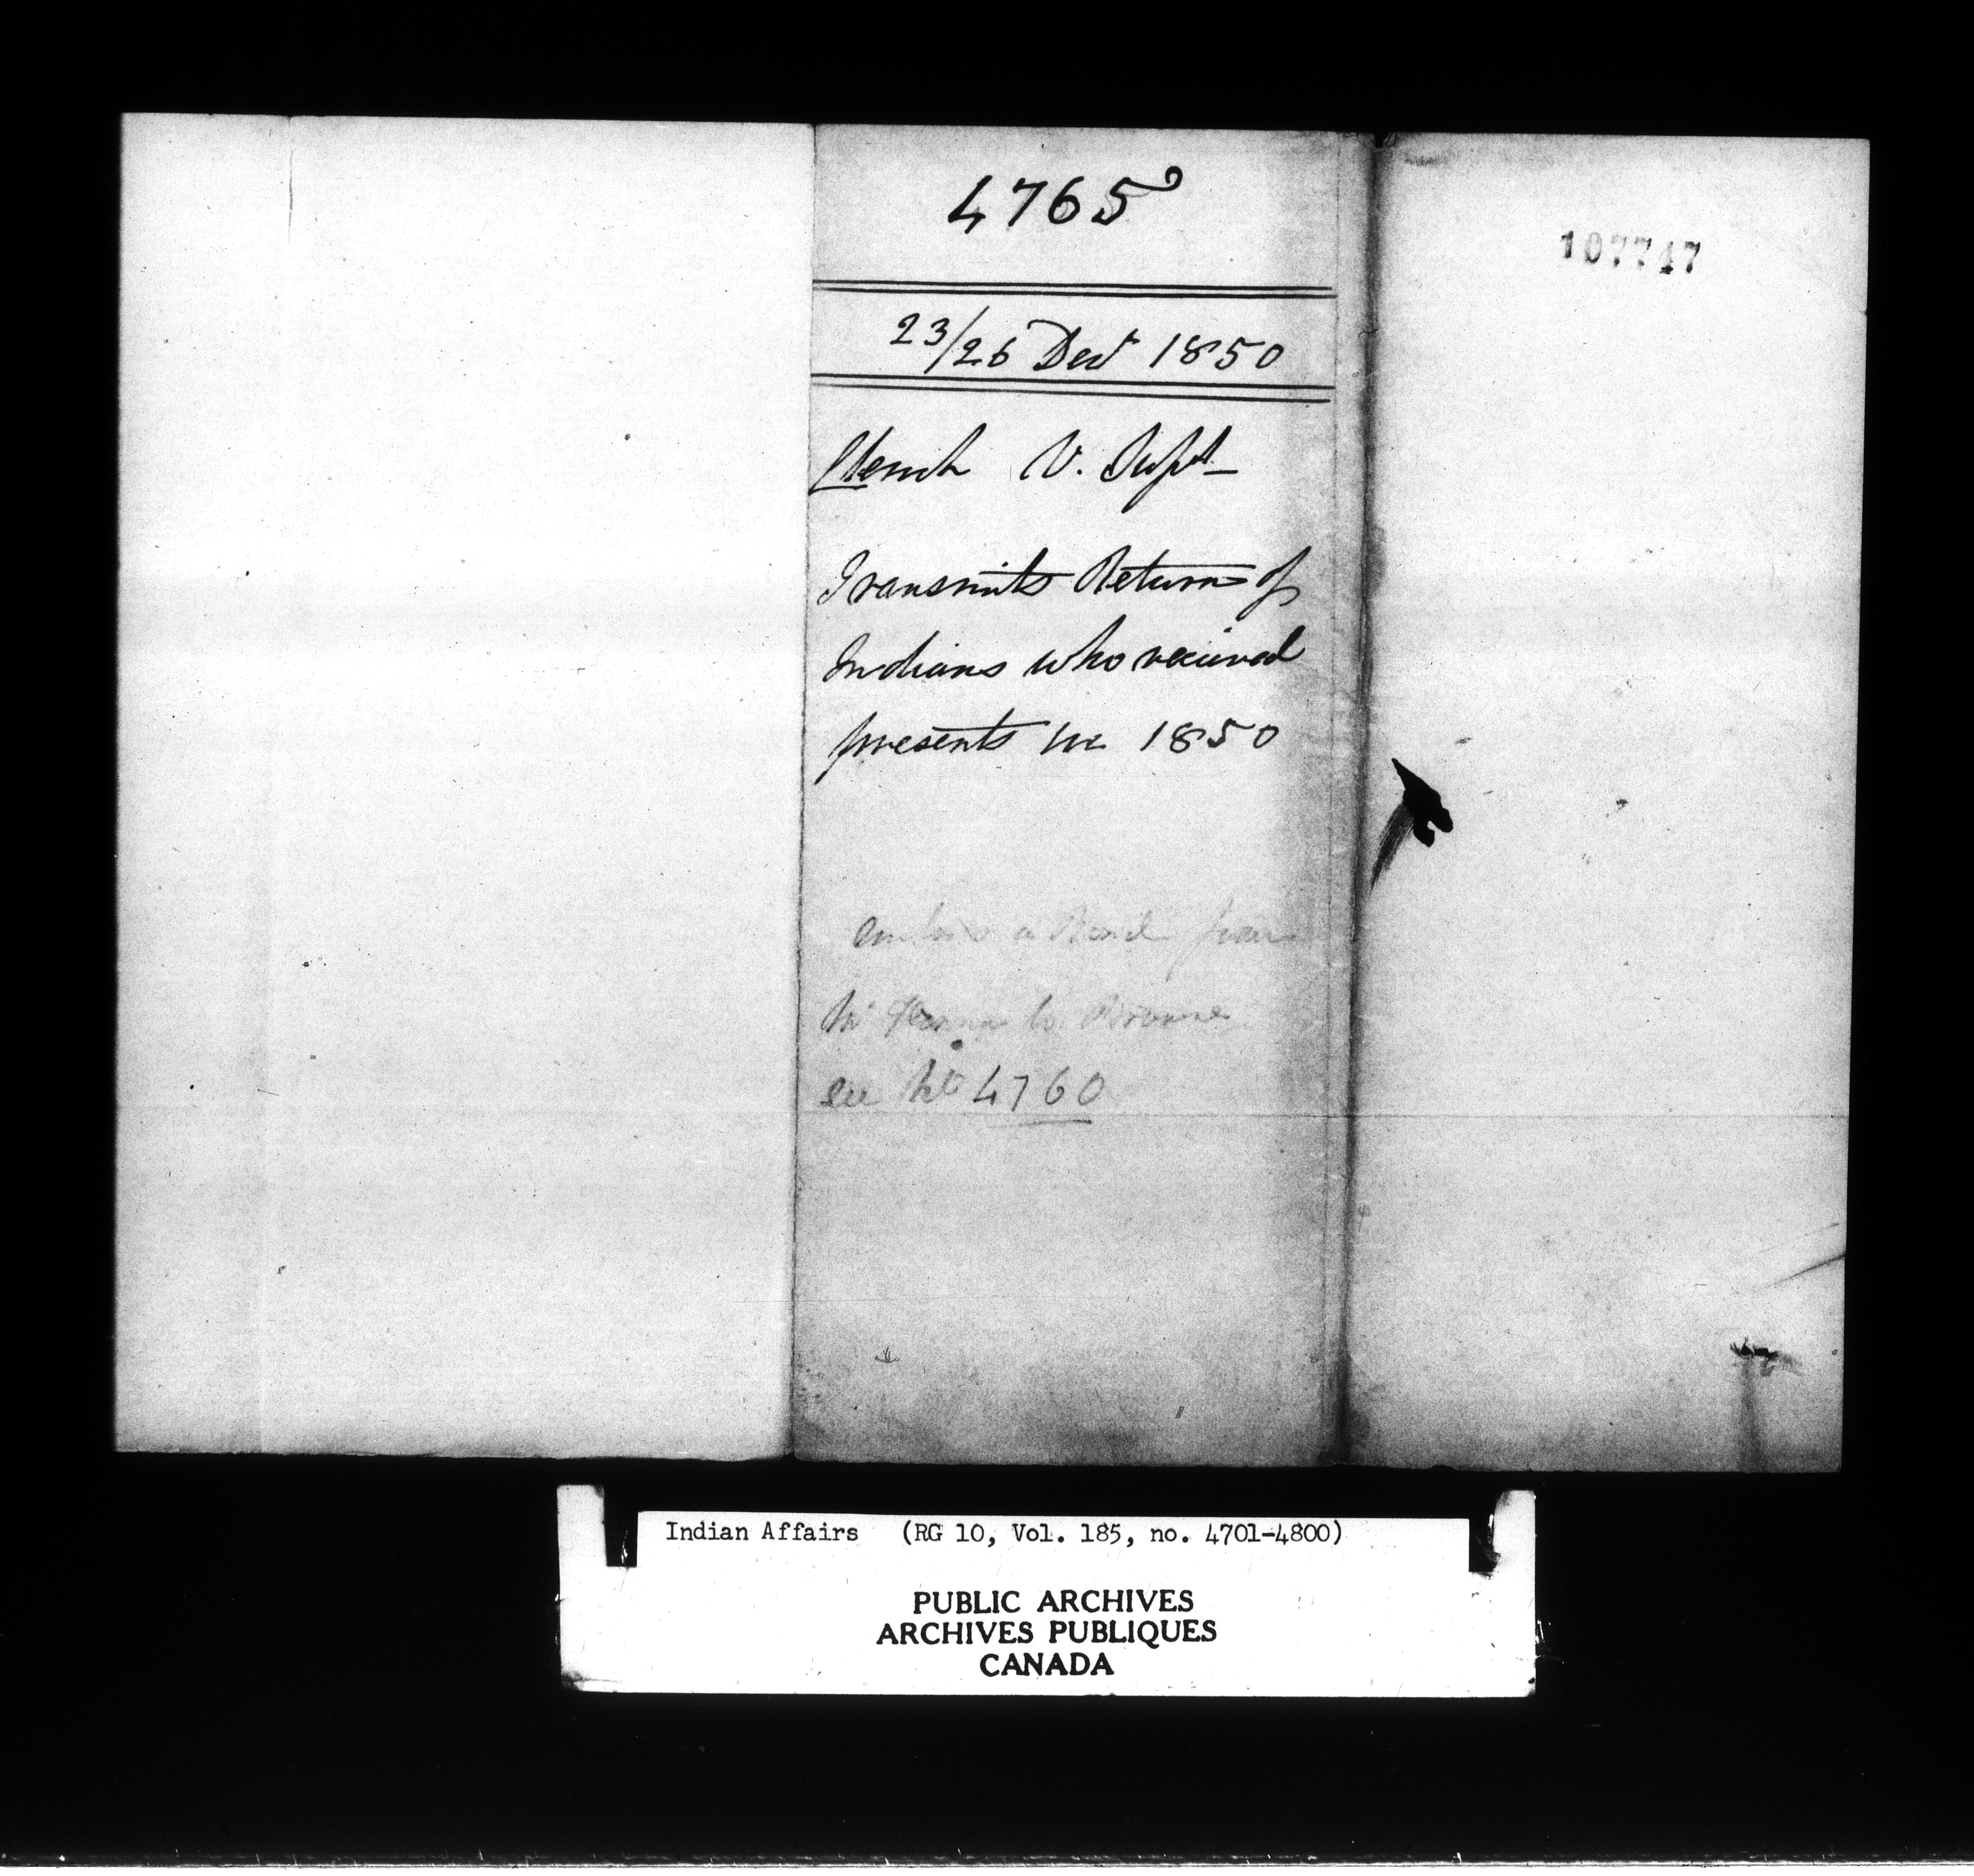 4765
107747
23/26 Decr 1850
Clench V. Supt
Transmits Return of
Indians who received
presents in 1850
a from
to
see No 4760
Indian Affairs (RG 10, Vol. 185, no. 4701-4800)
PUBLIC ARCHIVES
ARCHIVES PUBLIQUES
CANADA